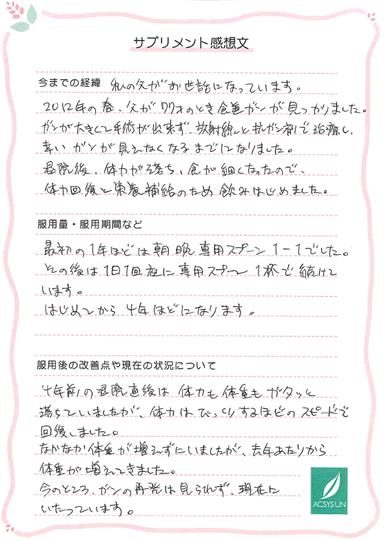 サプリメント感想文
今までの経緯 私の父がお世話になっています。
2012年の春、父が77才のとき食道ガンが見つかりました。
ガンが大きくて手術が出来ず、放射線と抗ガン剤で治療し、
幸い ガンが見えなくなるまでになりました。
退院後、体力が落ち、食が細くなったので、
体力回復と栄養補給のため 飲みはじめました。
服用量・服用期間など
最初の1年ほどは朝晩専用スプーン1-1でした。
その後は1日1回夜に専用スプーン1杯で続けて
います。
はじめてから 4年ほどになります。
服用後の改善点や現在の状況について
4年前の退院直後は 体力も体重もガタッと
落ちていましたが、体力は びっくりするほどの スピードで
回復しました。
なかなか体重が増えずにいましたが、去年あたりから
体重が増えてきました。
今のところ、ガンの再発は見られず、現在に
いたっています。
ACSYSUN